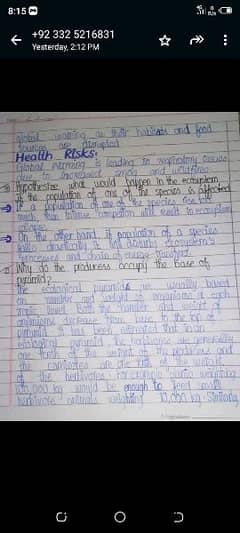 8:15
+92 332 5216831
Yesterday, 2:12 PM
global warming as their habitats and food
sources are disrupted
Health Risks:
Global warming is leading to respiratory issues
due to increased smog and wildfires
Hypothesize what would happen in the ecosystem
if the population of one of the species is affected
If a population of one of the species rise
much, than intense competition will result to ecosystem
collapse
On the other hand if population of a species
falls drastically it disturbs ecosystem's
processes and chain of energy transfer.
Why do the producers occupy the base of
pyramid?
The ecological pyramids are usually based
on number and weight of organisms at each
trophic level. Both the number and weight of
organisms decrease from base to the top of
pyramid. It has been estimated that in an
ecological pyramid the herbivores are generally
one tenth of the weight of the producers and
the carnivores are one tenth of the weight
of the herbivores. For example plants weighing
100,000 kg would be enough to feed small
herbivore animals weighing 10,000 kg. Similarly